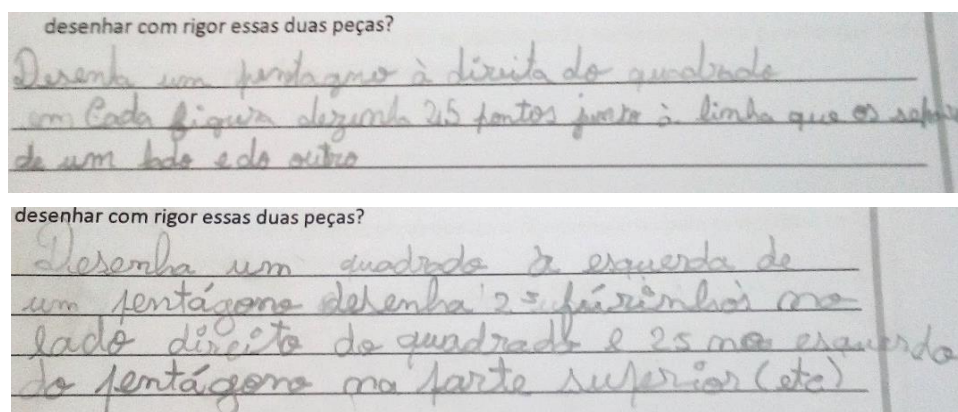 desenhar com rigor essas duas peças?
Desenha um pentagno à direita do quadrado
em Cada figura dezenha 25 pontos junto à linha que os separa
de um lado e do outro
desenhar com rigor essas duas peças?
Desenha um quadrado à esquerda de
um pentágono desenha 25 furinhos no
lado direito do quadrado e 25 no esquerdo
do pentágono na parte superior (etc)